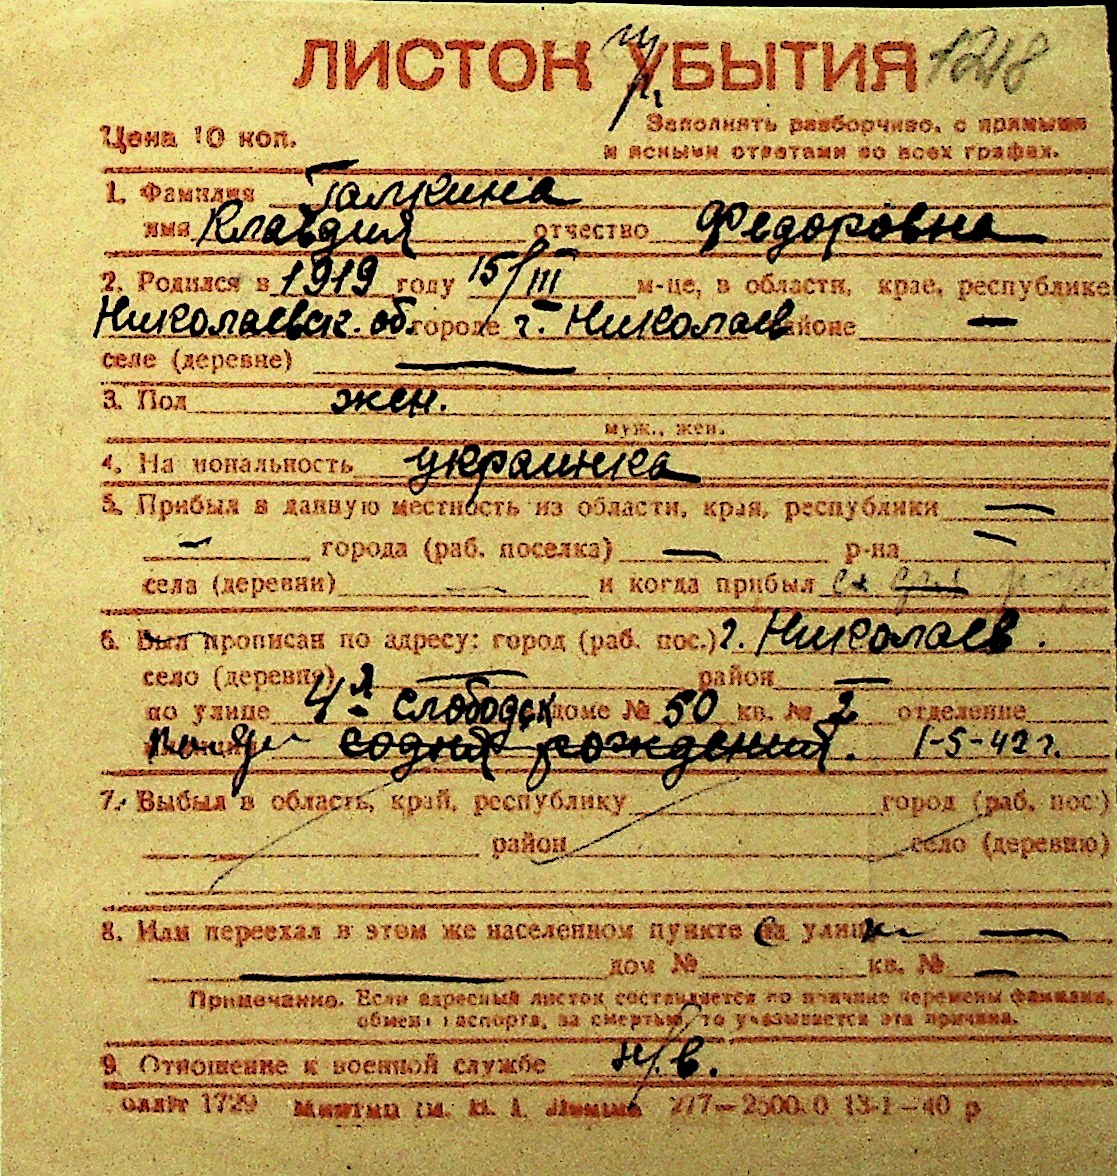 ЛИСТОК УБЫТИЯ 1218
Цена 10 коп.
Заполнять разборчиво, с прямыми
и ясными ответами во всех графах.
1. Фамилия Галкина
имя Клавдия отчество Федоровна
2. Родился в 1919 году 15/III м-це, в области, крае, республике
Николаевск. об. городе г. Николаев районе —
селе (деревне) —
3. Пол жен.
муж., жен.
4. На иональность украинка
5. Прибыл в данную местность из области, края, республики —
— города (раб. поселка) — р-на —
села (деревни) — и когда прибыл
6. Был прописан по адресу: город (раб. пос.) г. Николаев.
село (деревня) — район —
по улице 4я Слободск доме № 50 кв. № 2 отделение
содня рождения. 1-5-42 г.
7. Выбыл в область, край, республику город (раб. пос.)
район село (деревню)
8. Или переехал в этом же населенном пункте на улицу —
— дом № кв. № —
Примечание. Если адресный листок составляется по причине перемены фамилии,
обмена паспорта, за смертью, то указывается эта причина.
9. Отношение к военной службе н/в.
1729 277—2500 0 13-1—40 р